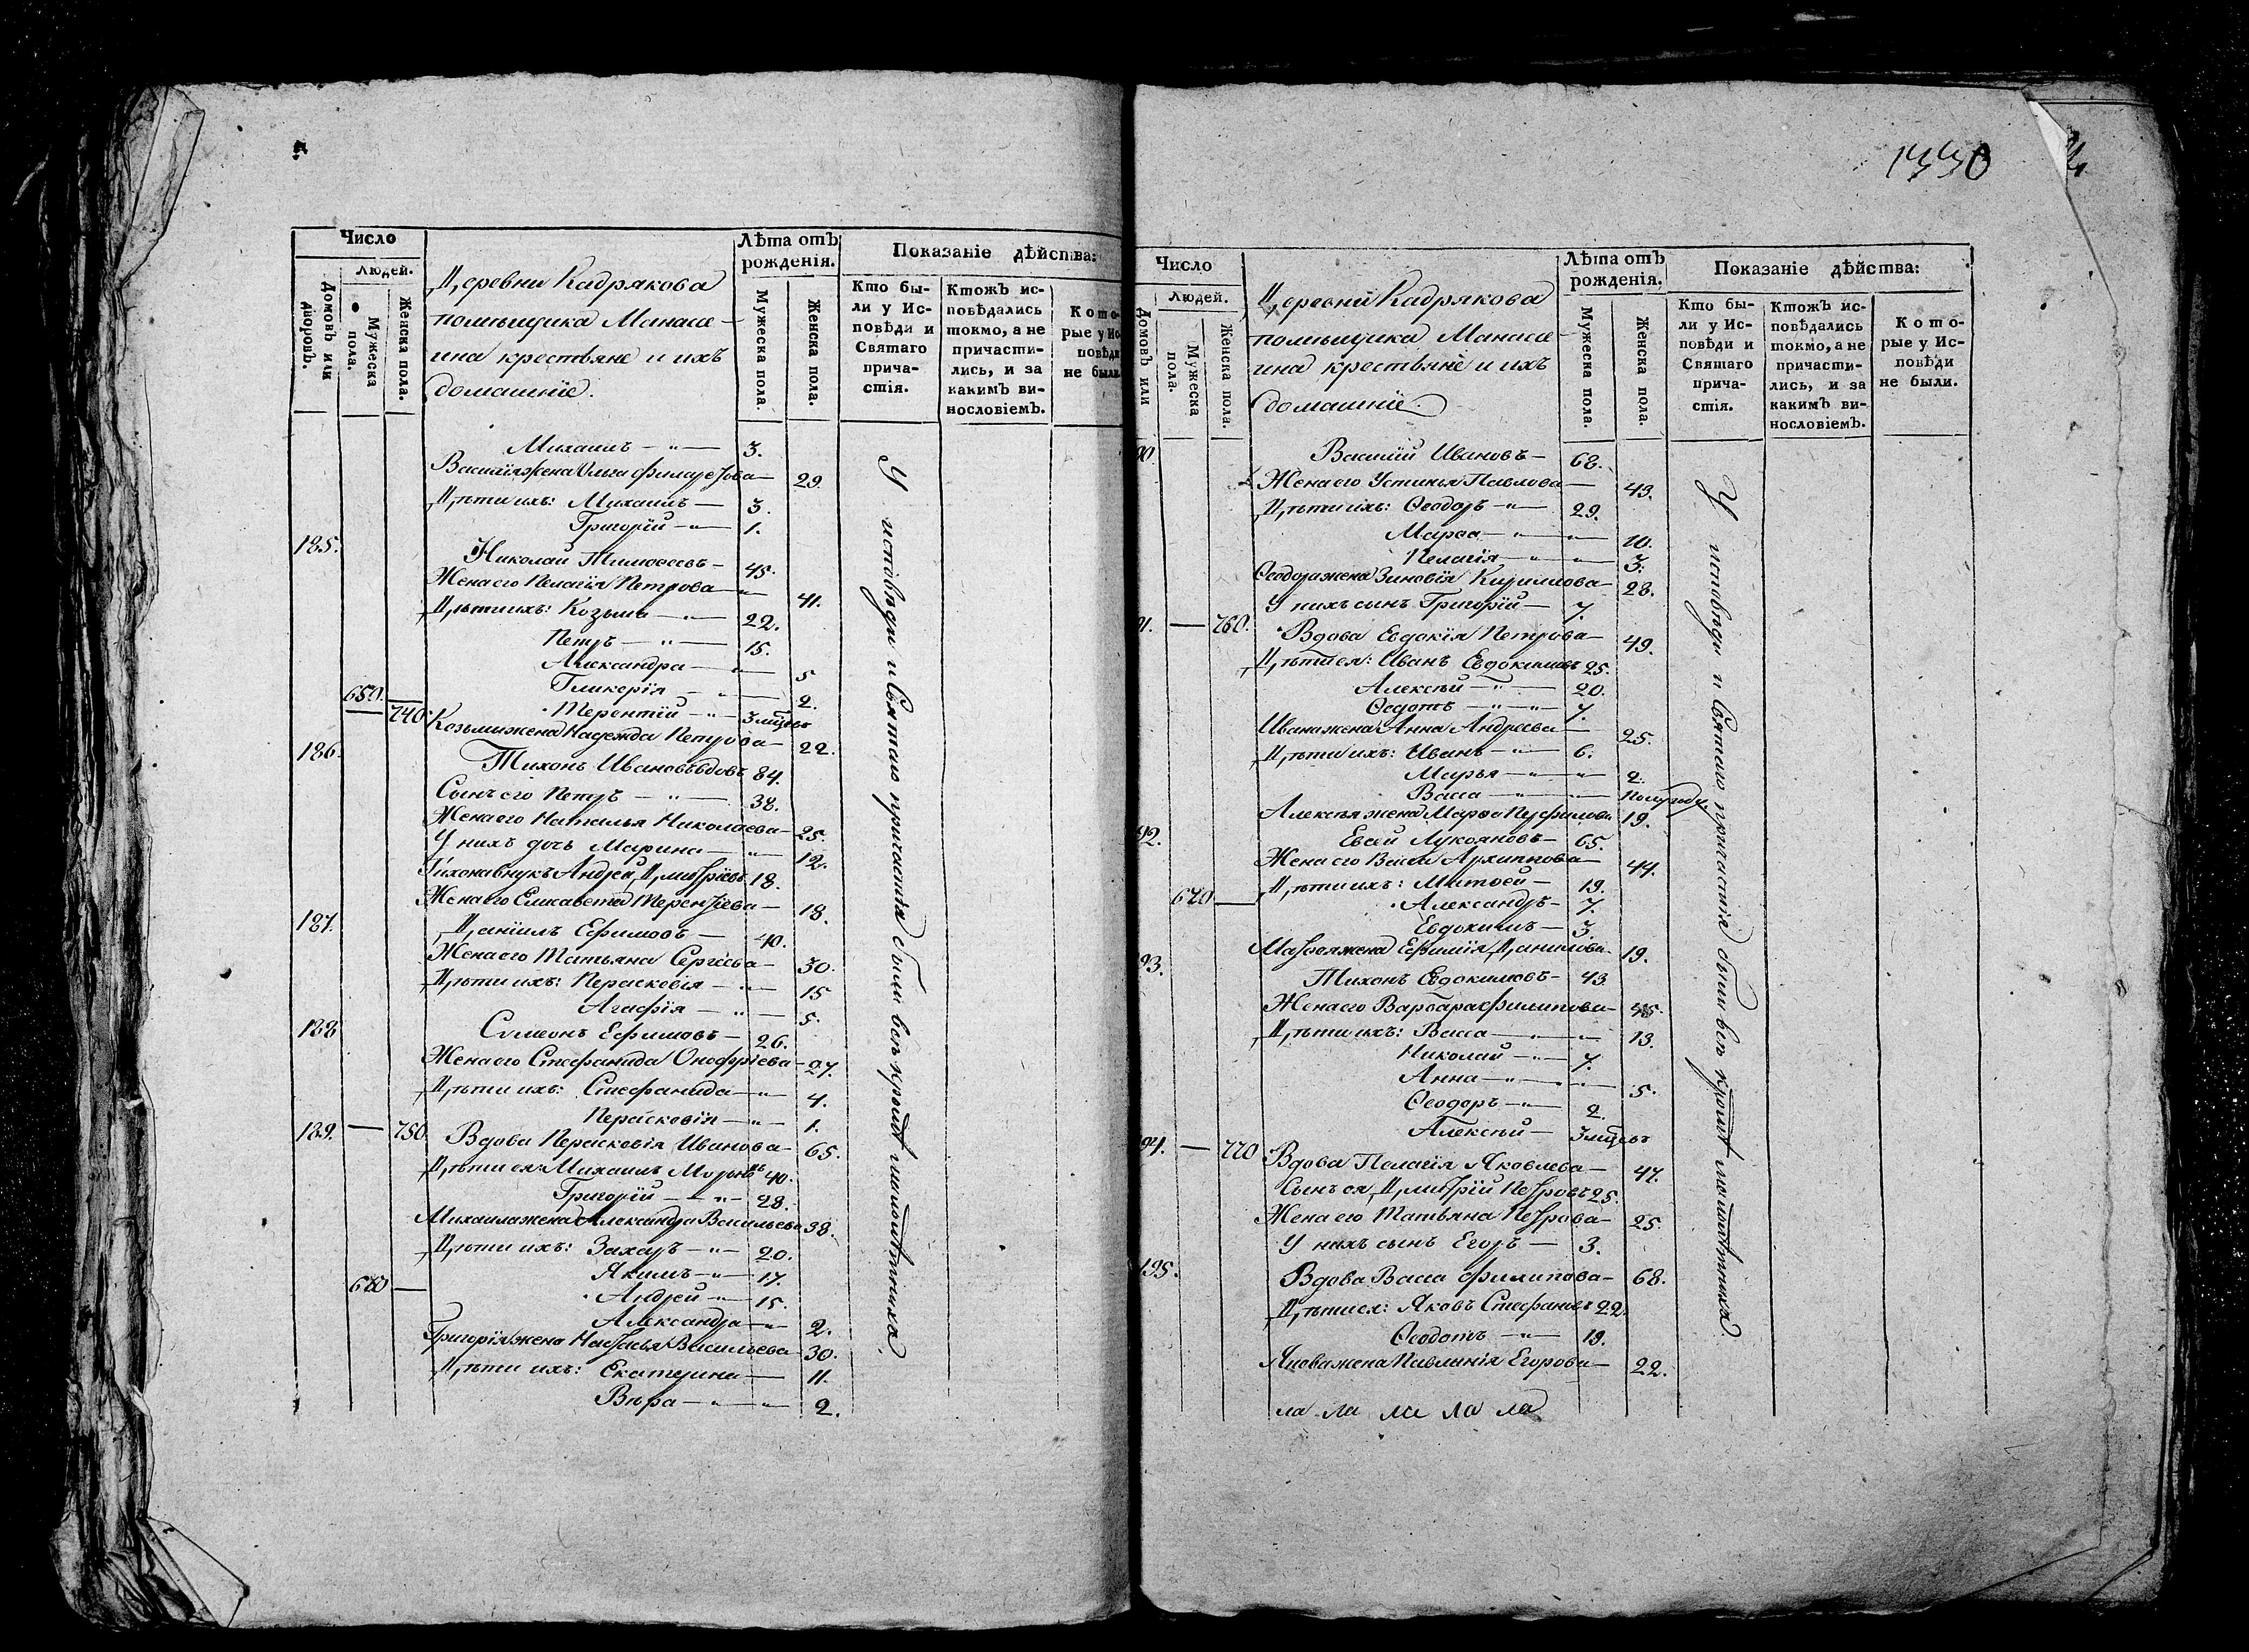 Число
Людей.
Домовъ или дворовъ.
Мужеска пола.
Женска пола.
Деревни Кадрякова
помѣщика Манасе-
ина крестьяне и ихъ
домашніе.
Лѣта отъ рожденія.
Мужеска пола.
Женска пола.
Показаніе дѣйства:
Кто были у Исповѣди и Святаго причастія.
Ктожъ исповѣдались токмо, а не причастились, и за какимъ винословіемъ.
Которые у Исповѣди не были.
Михаилъ — 3.
Василія жена Ольга Филаретова — 29.
Дѣти ихъ: Михаилъ — 3.
Григорій — 1.
185.
Николай Тимофеевъ — 45.
Жена его Пелагія Петрова — 41.
Дѣти ихъ: Козьма — 22.
Петръ — 15.
Александра — 5
Гликерія — 2.
650. Терентій — 3 мцевъ
740. Козьмы жена Надежда Петрова — 22.
186.
Тихонъ Ивановъ вдовъ 84.
Сынъ его Петръ — 38.
Жена его Наталья Николаева — 25.
У нихъ дочь Марина — 12.
Тихона внукъ Андрей Дмитріевъ 18.
Жена его Елисавета Терентіева — 18.
187.
Даніилъ Ефимовъ — 40.
Жена его Татьяна Сергѣева — 30.
Дѣти ихъ: Пераскевія — 15
Агафія — 5.
188
Сѵмеонъ Ефимовъ — 26.
Жена его Стефанида Онофріева — 27.
Дѣти ихъ: Стефанида — 4.
Пераскевія — 1.
189. — 750. Вдова Пераскевія Иванова — 65.
Дѣти ея: Михаилъ 40.
Григорій — 28.
Михаила жена Александра Васильева 38.
Дѣти ихъ: Захаръ — 20.
Якимъ — 17.
660 — Андрей — 15.
Александра — 2.
Григорія жена Настасья Васильева — 30.
Дѣти ихъ: Екатерина — 11.
Вѣра — 2.
У исповѣди и Святаго причастія были всѣ кромѣ малолѣтнихъ.
1330
Число
Людей.
Домовъ или
Мужеска пола.
Женска пола.
Деревни Кадрякова
помѣщика Манасе-
ина крестьяне и ихъ
домашніе.
Лѣта отъ рожденія.
Мужеска пола.
Женска пола.
Показаніе дѣйства:
Кто были у Исповѣди и Святаго причастія.
Ктожъ исповѣдались токмо, а не причастились, и за какимъ винословіемъ.
Которые у Исповѣди не были.
90.
Василій Ивановъ — 68.
Жена его Устинья Павлова — 43.
Дѣти ихъ: Ѳеодоръ — 29.
Марѳа — 10.
Пелагія — 3.
Ѳеодора жена Зиновія Кирилова — 28.
У нихъ сынъ Григорій — 7.
91. — 760. Вдова Евдокія Петрова — 49.
Дѣти ея: Иванъ Евдокимовъ 25.
Алексѣй — 20.
Ѳедотъ — 7.
Ивана жена Анна Андреева — 25.
Дѣти ихъ: Иванъ — 6.
Марья — 2.
Васса — полугоду.
Алексѣя жена Марѳа Перфилова 19.
92.
Евсей Лукояновъ — 65.
Жена его Васса Архипова — 44.
Дѣти ихъ: Матѳей — 19.
670 — Александръ — 7.
Евдокимъ — 3.
Матѳея жена Ефимія Данилова — 19.
93.
Тихонъ Евдокимовъ — 43.
Жена его Варвара Филипова — 45.
Дѣти ихъ: Васса — 13.
Николай — 7.
Анна — 5.
Ѳеодоръ — 2.
Алексѣй — 3 мцевъ
94. — 770 Вдова Пелагія Яковлева — 47.
Сынъ ея Дмитрій Петровъ 25.
Жена его Татьяна Петрова — 25.
У нихъ сынъ Егоръ — 3.
195.
Вдова Васса Филипова — 68.
Дѣти ея: Яковъ Стефановъ 22.
Ѳеодотъ — 19.
Якова жена Павлинія Егорова — 22.
ла ла ла ла ла
У исповѣди и Святаго причастія были всѣ кромѣ малолѣтнихъ.